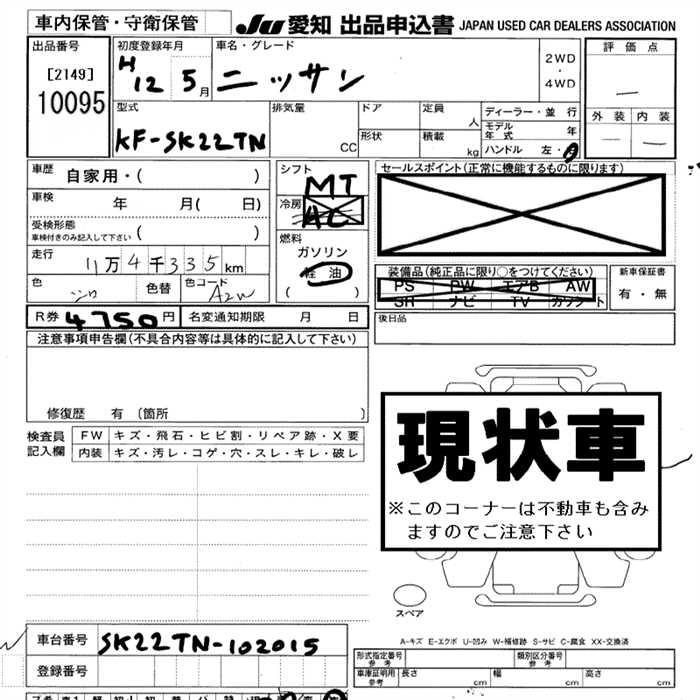 車内保管・守衛保管
JU 愛知 出品申込書 JAPAN USED CAR DEALERS ASSOCIATION
出品番号
[2149]
10095
初度登録年月
H12 5月
車名・グレード
ニッサン
2WD
・
4WD
評価点
—
外装 内装
— —
型式
KF-SK22TN
排気量
CC
ドア
形状
定員
人
積載
kg
ディーラー・並行
モデル年式 年
ハンドル 左・
車歴 自家用・( )
車検 年 月( 日)
受検形態
車検付きのみ記入して下さい ( )
走行 11万4千335km
色 シロ 色替 色コード
R券 4750円 名変通知期限 月 日
シフト
MT
冷房
AC
燃料
ガソリン
軽油
( )
セールスポイント(正常に機能するものに限ります)
装備品(純正品に限り○をつけてください)
PS PW エアB AW
SR ナビ TV カワシート
新車保証書
有・無
後日品
注意事項申告欄(不具合内容等は具体的に記入して下さい)
修復歴 有 〔箇所 〕
検査員記入欄
FW キズ・飛石・ヒビ割・リペア跡・X要
内装 キズ・汚レ・コゲ・穴・スレ・キレ・破レ
現状車
※このコーナーは不動車も含み
ますのでご注意下さい
スペア
A-キズ E-エクボ U-凹み W-補修跡 S-サビ C-腐食 XX-交換済
車台番号 SK22TN-102015
登録番号
形式指定番号
参考
類別区分番号
参考
車庫証明用
参考
長さ cm 幅 cm 高さ cm